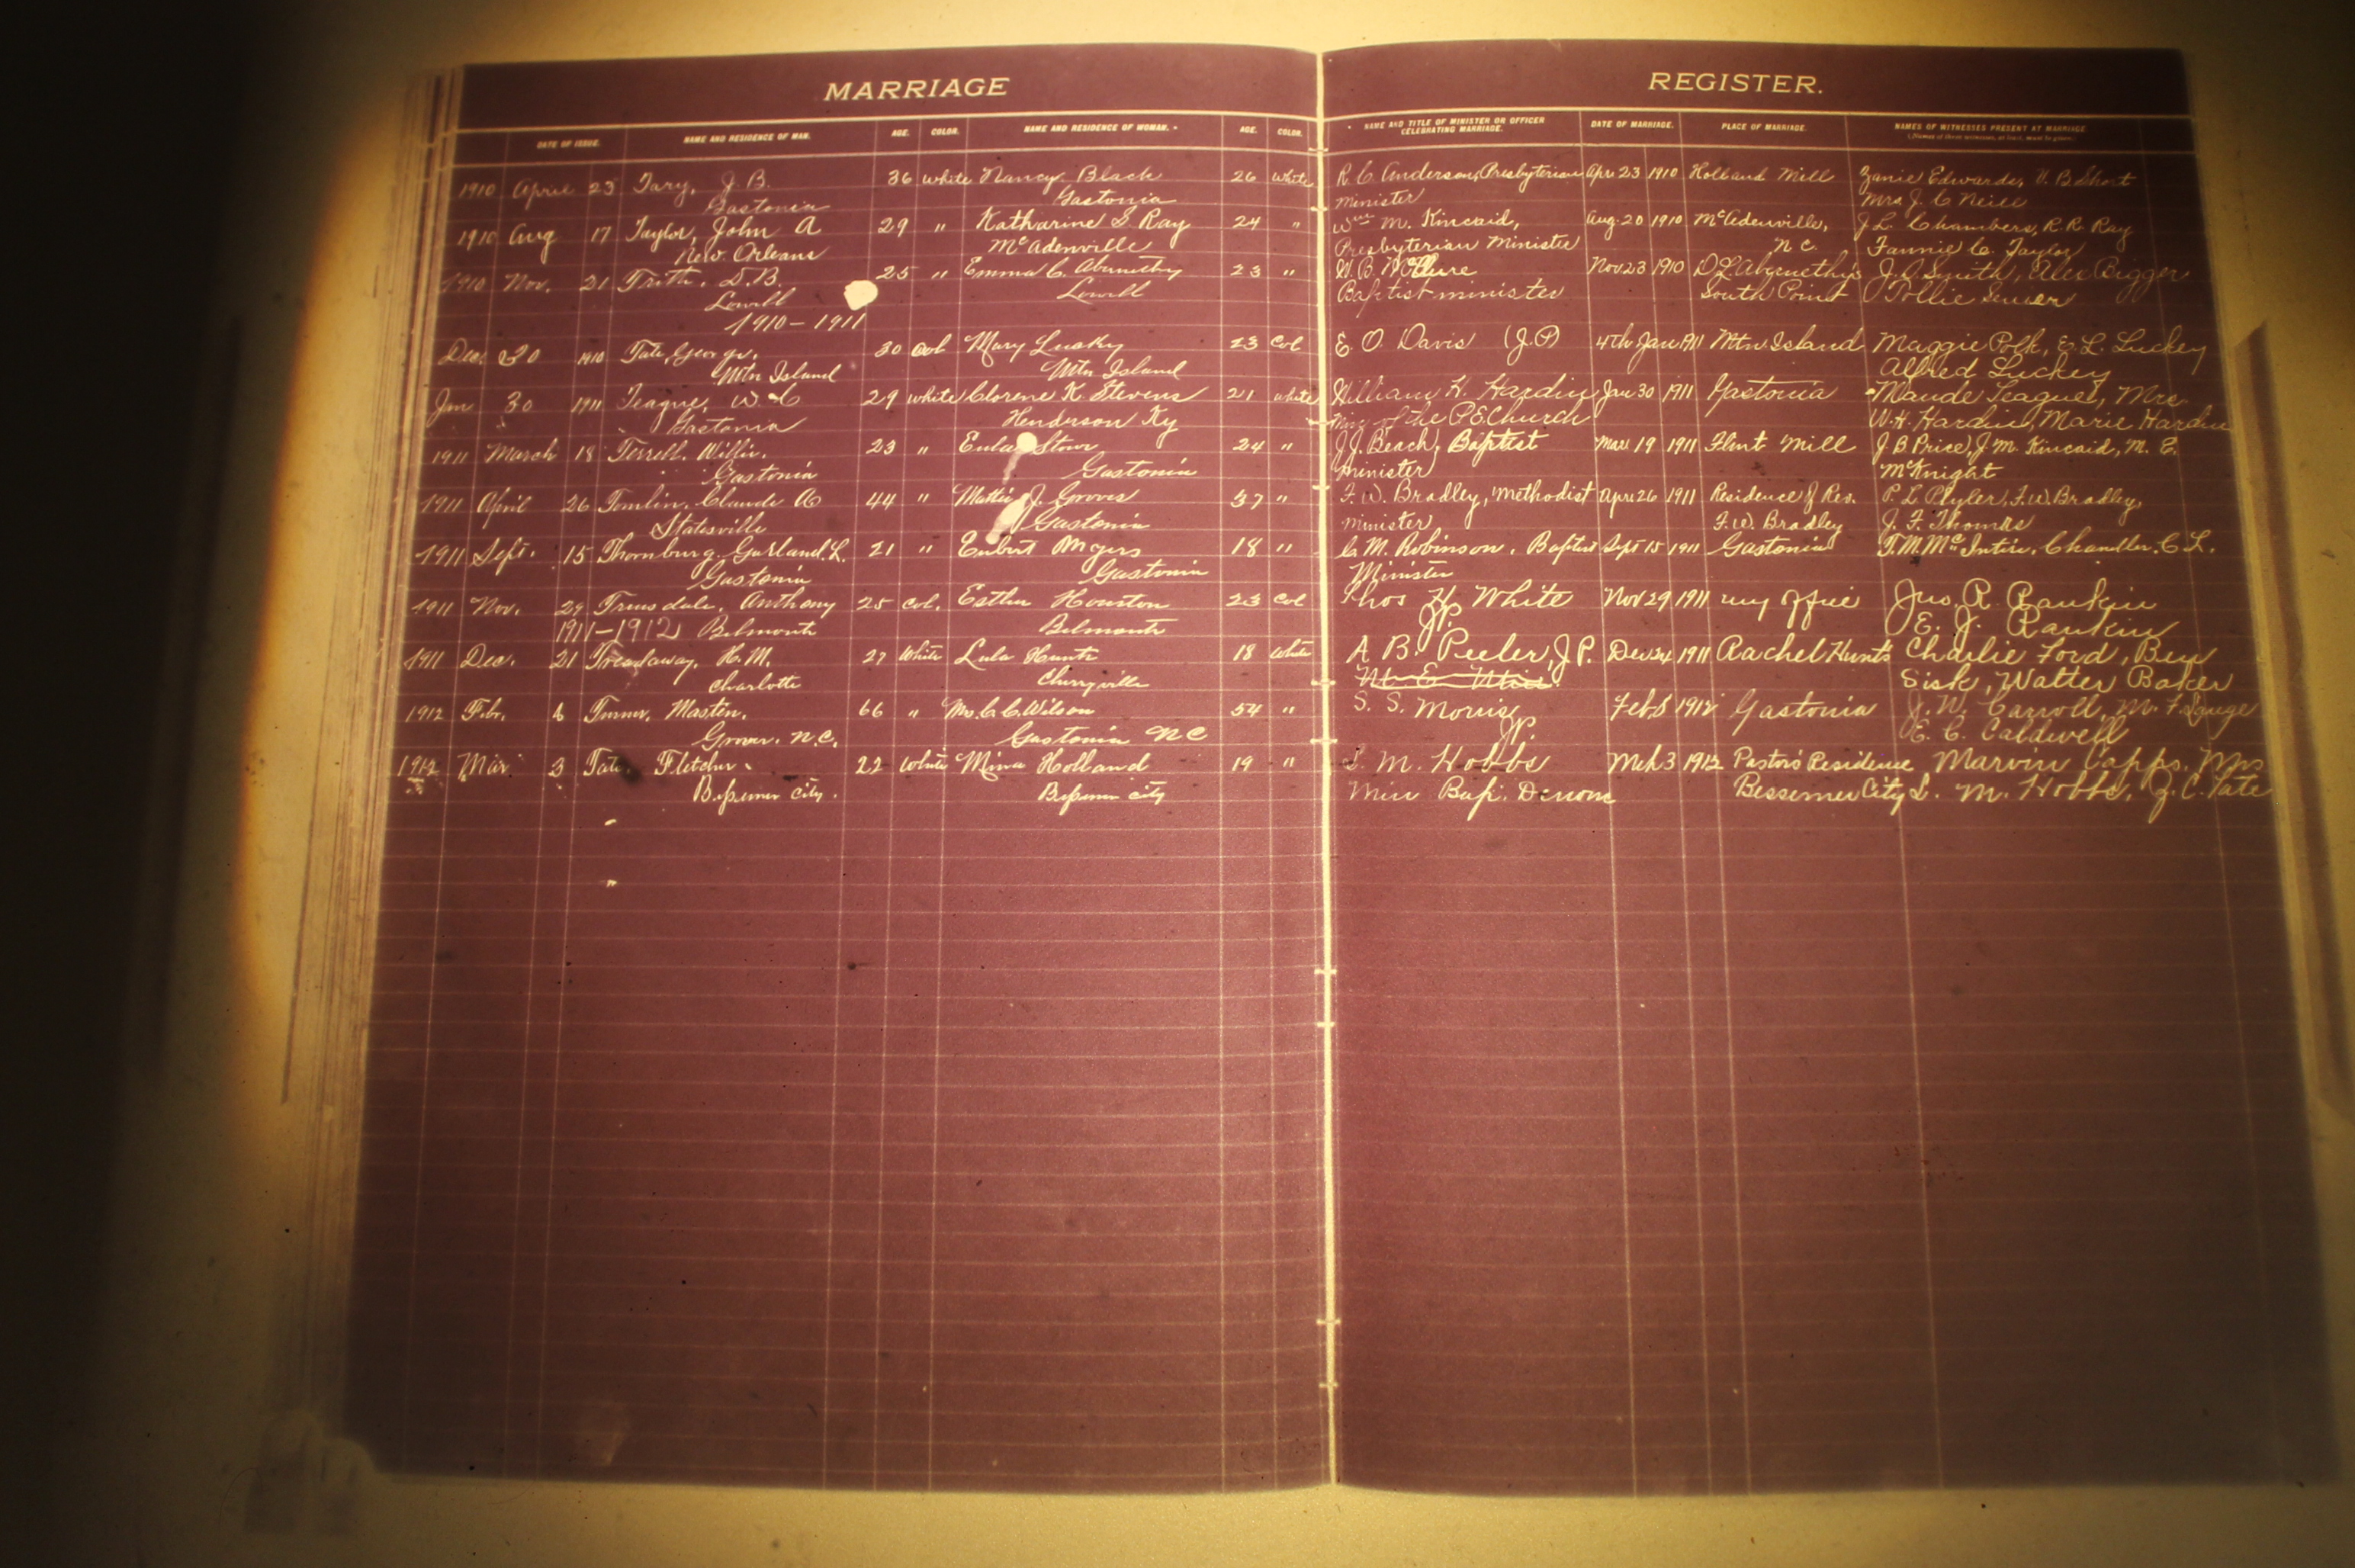 MARRIAGE
REGISTER.
DATE OF ISSUE. NAME AND RESIDENCE OF MAN. AGE. COLOR. NAME AND RESIDENCE OF WOMAN. AGE. COLOR. NAME AND TITLE OF MINISTER OR OFFICER CELEBRATING MARRIAGE. DATE OF MARRIAGE. PLACE OF MARRIAGE. NAMES OF WITNESSES PRESENT AT MARRIAGE
1910 April 23 Tary, J. B. 36 white Nancy Black 26 white R. C. Anderson, Presbyterian Apr 23 1910 Holland Mill Zanie Edwards, V. B. Short
Gastonia Gastonia minister Mrs J. C Neill
1910 Aug 17 Taylor, John A 29 " Katharine S. Ray 24 " Wm M. Kincaid, Aug. 20 1910 McAdenville, J L Chambers, R. R. Ray
New Orleans McAdenville Presbyterian Minister N C. Fannie C. Taylor
1910 Nov. 21 Trith. D. B. 25 " Emma C. Abernethy 23 " W. B. McClure Nov 23 1910 D L Abernethy's J. C. Smith, Alex Bigger
Lowell Lowell Baptist minister South Point Tollie
1910 - 1911
Dec. 30 1910 Tate, George. 30 Col Mary Lucky 23 Col E. O. Davis (J.P) 4th Jan 1911 Mtn Island Maggie Polk, E. L. Luckey
Mtn Island Mtn Island Alfred Luckey
Jan 30 1911 Teague, W. C 29 white Clorene K. Stevens 21 white William H. Hardin Jan 30 1911 Gastonia Maude Teague, Mrs.
Gastonia Henderson Ky Min of the P.E. Church W. H. Hardin, Marie Hardin
1911 March 18 Terrell. Willie. 23 " Eula Stowe 24 " J. J. Beach, Baptist Mar 19 1911 Flint Mill J B Price, J. M. Kincaid, M. E.
Gastonia Gastonia minister McKnight
1911 April 26 Tomlin, Claude A 44 " Mattie J. Groves 37 " F. W. Bradley, Methodist Apr 26 1911 Residence of Rev. P. L. Plyler, F. W. Bradley,
Statesville Gastonia minister F. W. Bradley J. F. Thomas
1911 Sept. 15 Thornburg, Garland L. 21 " Myers 18 " C. M. Robinson. Baptist Sept 15 1911 Gastonia T. M. McIntire, Chandler. C L.
Gastonia Gastonia Minister
1911 Nov. 29 Truesdale, Anthony 25 Col. Esther Houston 23 Col Thos H. White Nov 29 1911 my office Jno. R. Rankin
1911-1912 Belmont Belmont J.P. E. J. Rankin
1911 Dec. 21 Treadaway, H. M. 27 White Lula Hunt 18 White A B. Peeler, J P. Dec 24 1911 Rachel Hunts Charlie Ford, Ben
Charlotte Cherryville Sisk, Walter Baker
1912 Feb. 6 Turner, Masten. 66 " Mrs. C. C. Wilson 54 " S. S. Morris Feb 1912 Gastonia J. W. Carroll, M. F.
Grover. N.C. Gastonia N C J.P. E. C. Caldwell
1912 Mar 3 Tate. Fletcher. 22 White Mina Holland 19 " S. M. Hobbs Mch 3 1912 Pastor's Residence Marvin Capps. Mrs
Bessemer City. Bessemer City Min Bap. Denom Bessemer City S. M. Hobbs, J. C. Tate